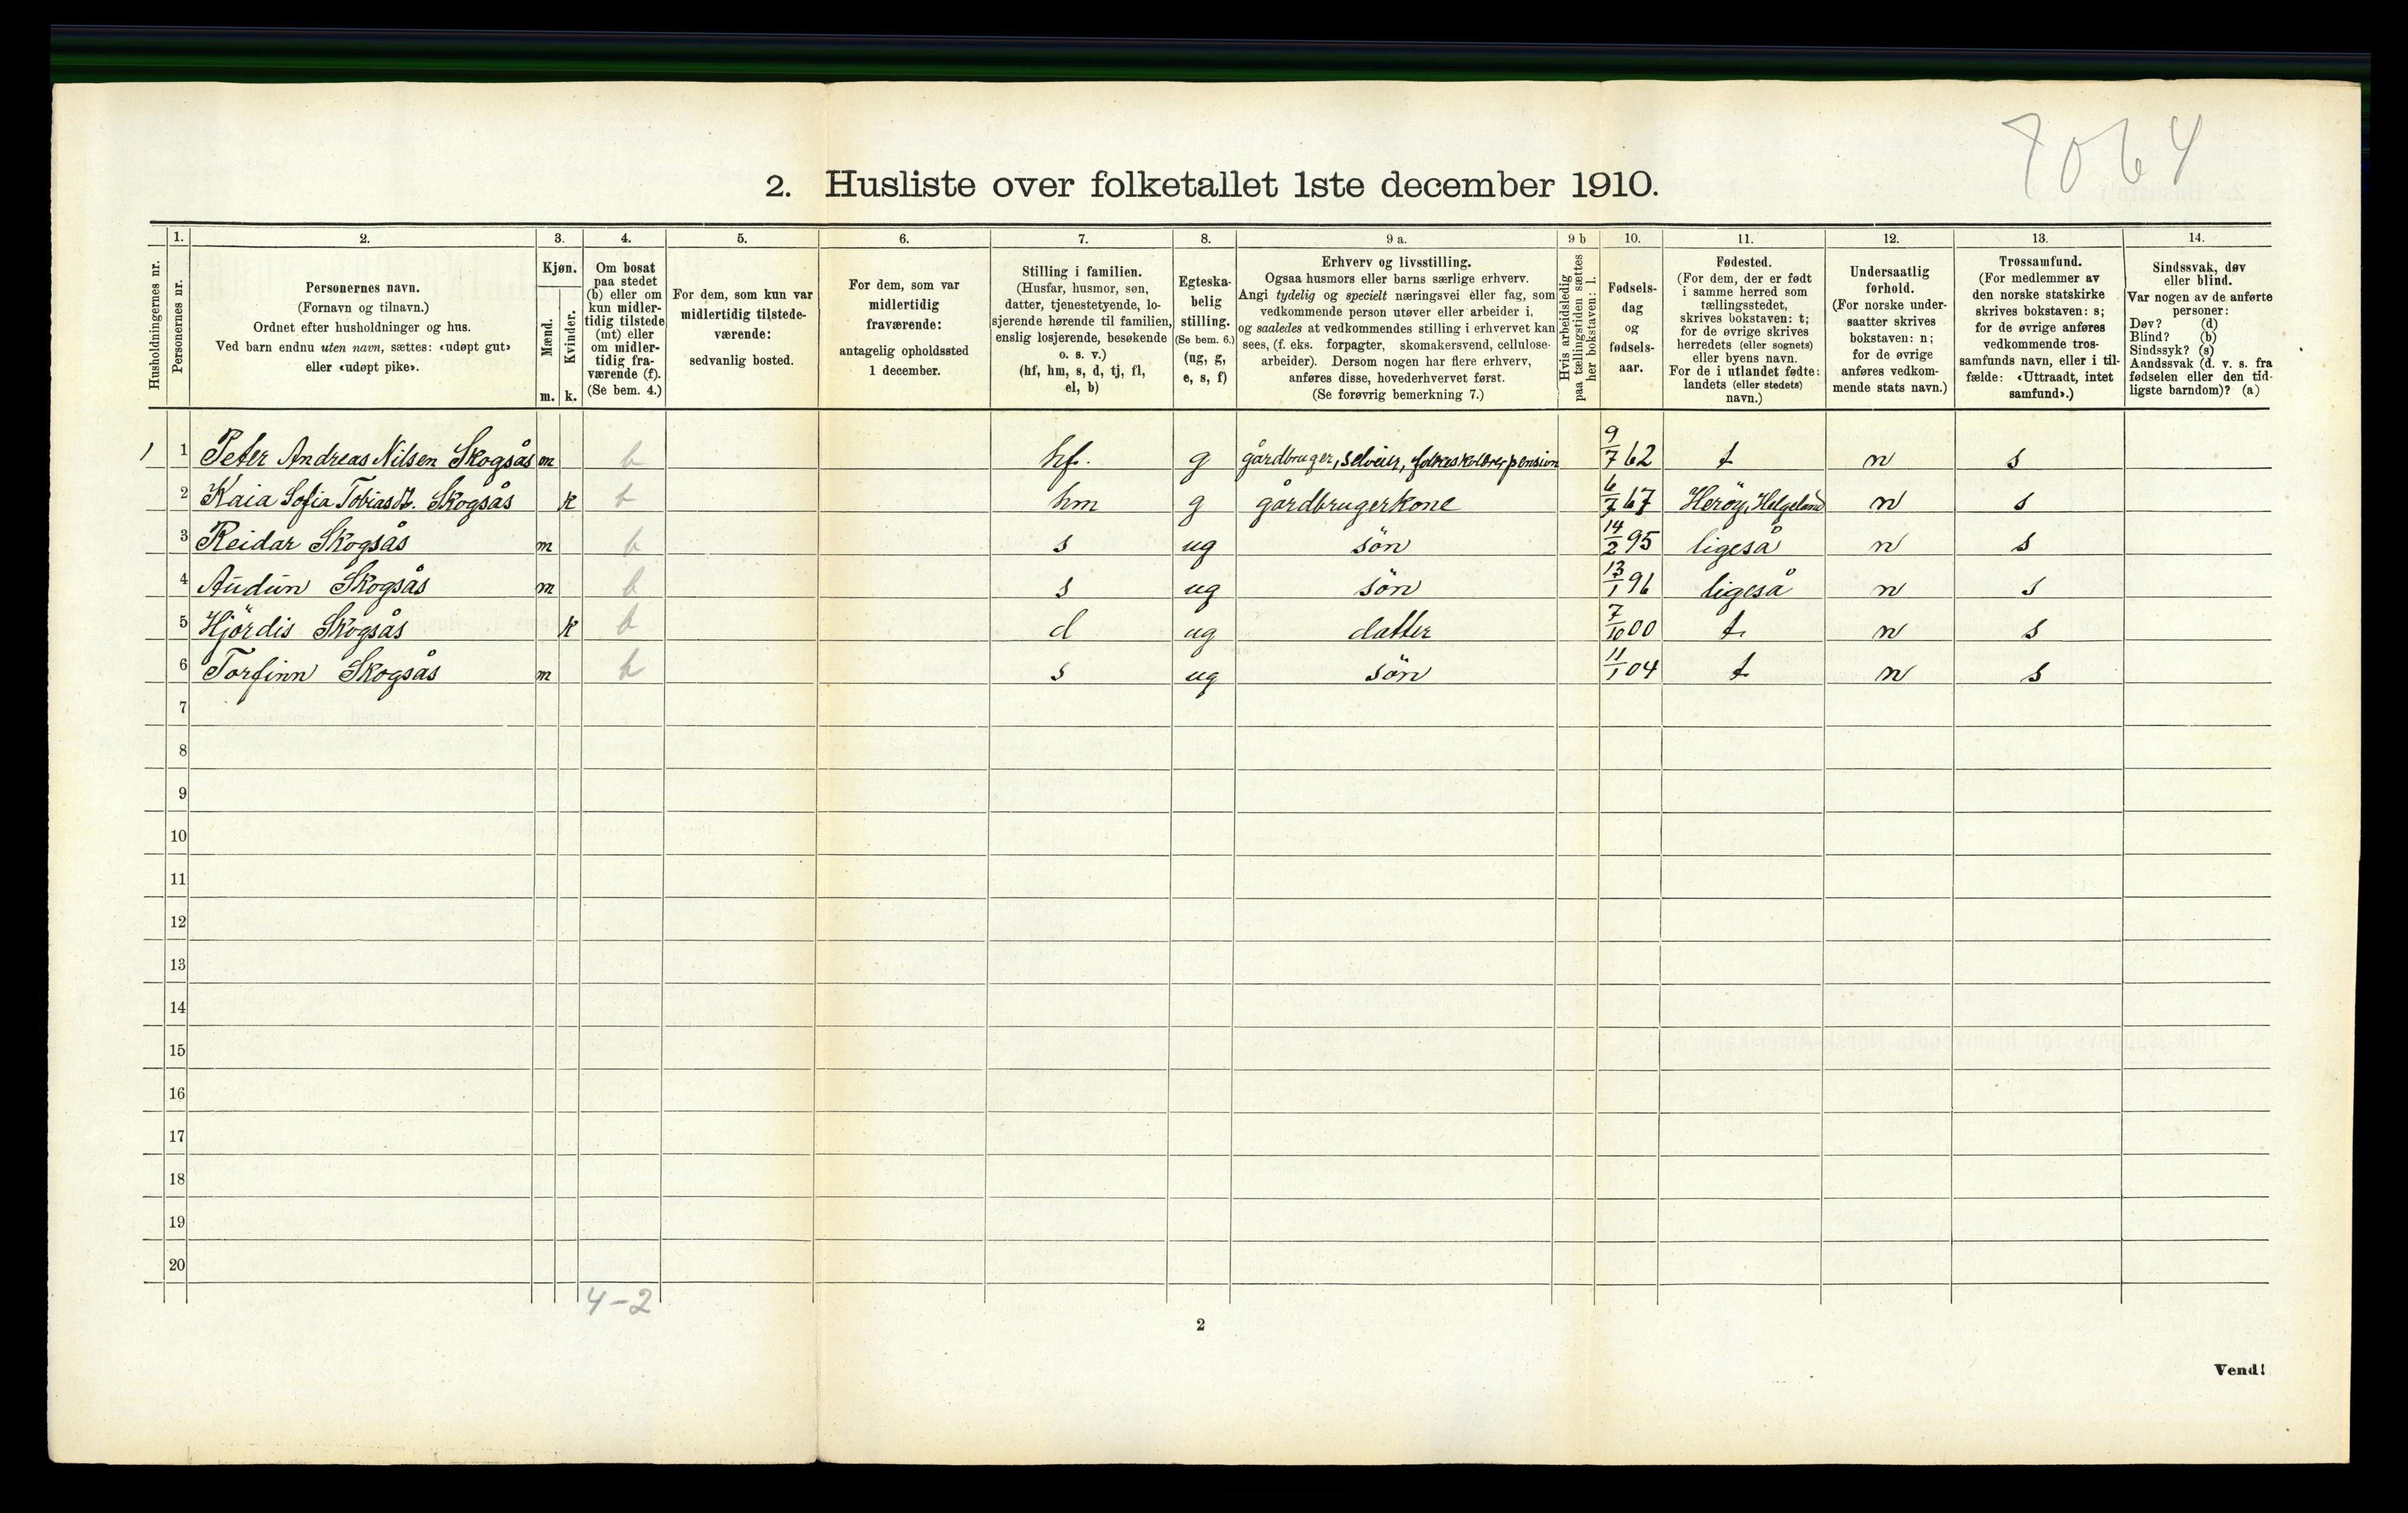 7064
2. Husliste over folketallet 1ste december 1910.
1. 2. 3. 4. 5. 6. 7. 8. 9 a. 9 b 10. 11. 12. 13. 14.
Husholdningernes nr.
Personernes nr.
Personernes navn.
(Fornavn og tilnavn.)
Ordnet efter husholdninger og hus.
Ved barn endnu uten navn, sættes: «udøpt gut»
eller «udøpt pike».
Kjøn.
Mænd.
Kvinder.
m. k.
Om bosat
paa stedet
(b) eller om
kun midler-
tidig tilstede
(mt) eller
om midler-
tidig fra-
værende (f).
(Se bem. 4.)
For dem, som kun var
midlertidig tilstede-
værende:
sedvanlig bosted.
For dem, som var
midlertidig
fraværende:
antagelig opholdssted
1 december.
Stilling i familien.
(Husfar, husmor, søn,
datter, tjenestetyende, lo-
sjerende hørende til familien,
enslig losjerende, besøkende
o. s. v.)
(hf, hm, s, d, tj, fl,
el, b)
Egteska-
belig
stilling.
(Se bem. 6.)
(ug, g,
e, s, f)
Erhverv og livsstilling.
Ogsaa husmors eller barns særlige erhverv.
Angi tydelig og specielt næringsvei eller fag, som
vedkommende person utøver eller arbeider i,
og saaledes at vedkommendes stilling i erhvervet kan
sees, (f. eks. forpagter, skomakersvend, cellulose-
arbeider). Dersom nogen har flere erhverv,
anføres disse, hovederhvervet først.
(Se forøvrig bemerkning 7.)
Hvis arbeidsledig
paa tællingstiden sættes
her bokstaven: l.
Fødsels-
dag
og
fødsels-
aar.
Fødested.
(For dem, der er født
i samme herred som
tællingsstedet,
skrives bokstaven: t;
for de øvrige skrives
herredets (eller sognets)
eller byens navn.
For de i utlandet fødte:
landets (eller stedets)
navn.)
Undersaatlig
forhold.
(For norske under-
saatter skrives
bokstaven: n;
for de øvrige
anføres vedkom-
mende stats navn.)
Trossamfund.
(For medlemmer av
den norske statskirke
skrives bokstaven: s;
for de øvrige anføres
vedkommende tros-
samfunds navn, eller i til-
fælde: «Uttraadt, intet
samfund».)
Sindssvak, døv
eller blind.
Var nogen av de anførte
personer:
Døv? (d)
Blind? (b)
Sindssyk? (s)
Aandssvak (d. v. s. fra
fødselen eller den tid-
ligste barndom)? (a)
1 1 Peter Andreas Nilsen Skogsås m b hf. g gårdbruger, selveier, folkeskolærerpension 9/7 62 t n s
2 Kaia Sofia Tobiasdt. Skogsås k b hm g gårdbrugerkone 6/7 67 Herøy, Helgeland n s
3 Reidar Skogsås m b s ug sön 14/2 95 ligeså n s
4 Audun Skogsås m b s ug sön 13/1 96 ligeså n s
5 Hjördis Skogsås k b d ug datter 7/10 00 t. n s
6 Torfinn Skogsås m b s ug sön 11/1 04 t n s
7
8
9
10
11
12
13
14
15
16
17
18
19
20
4-2
2
Vend!